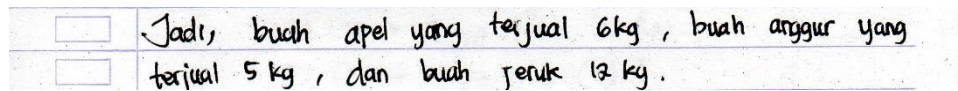 Jadi, buah apel yang terjual 6kg, buah anggur yang
terjual 5 kg, dan buah jeruk 12 kg.